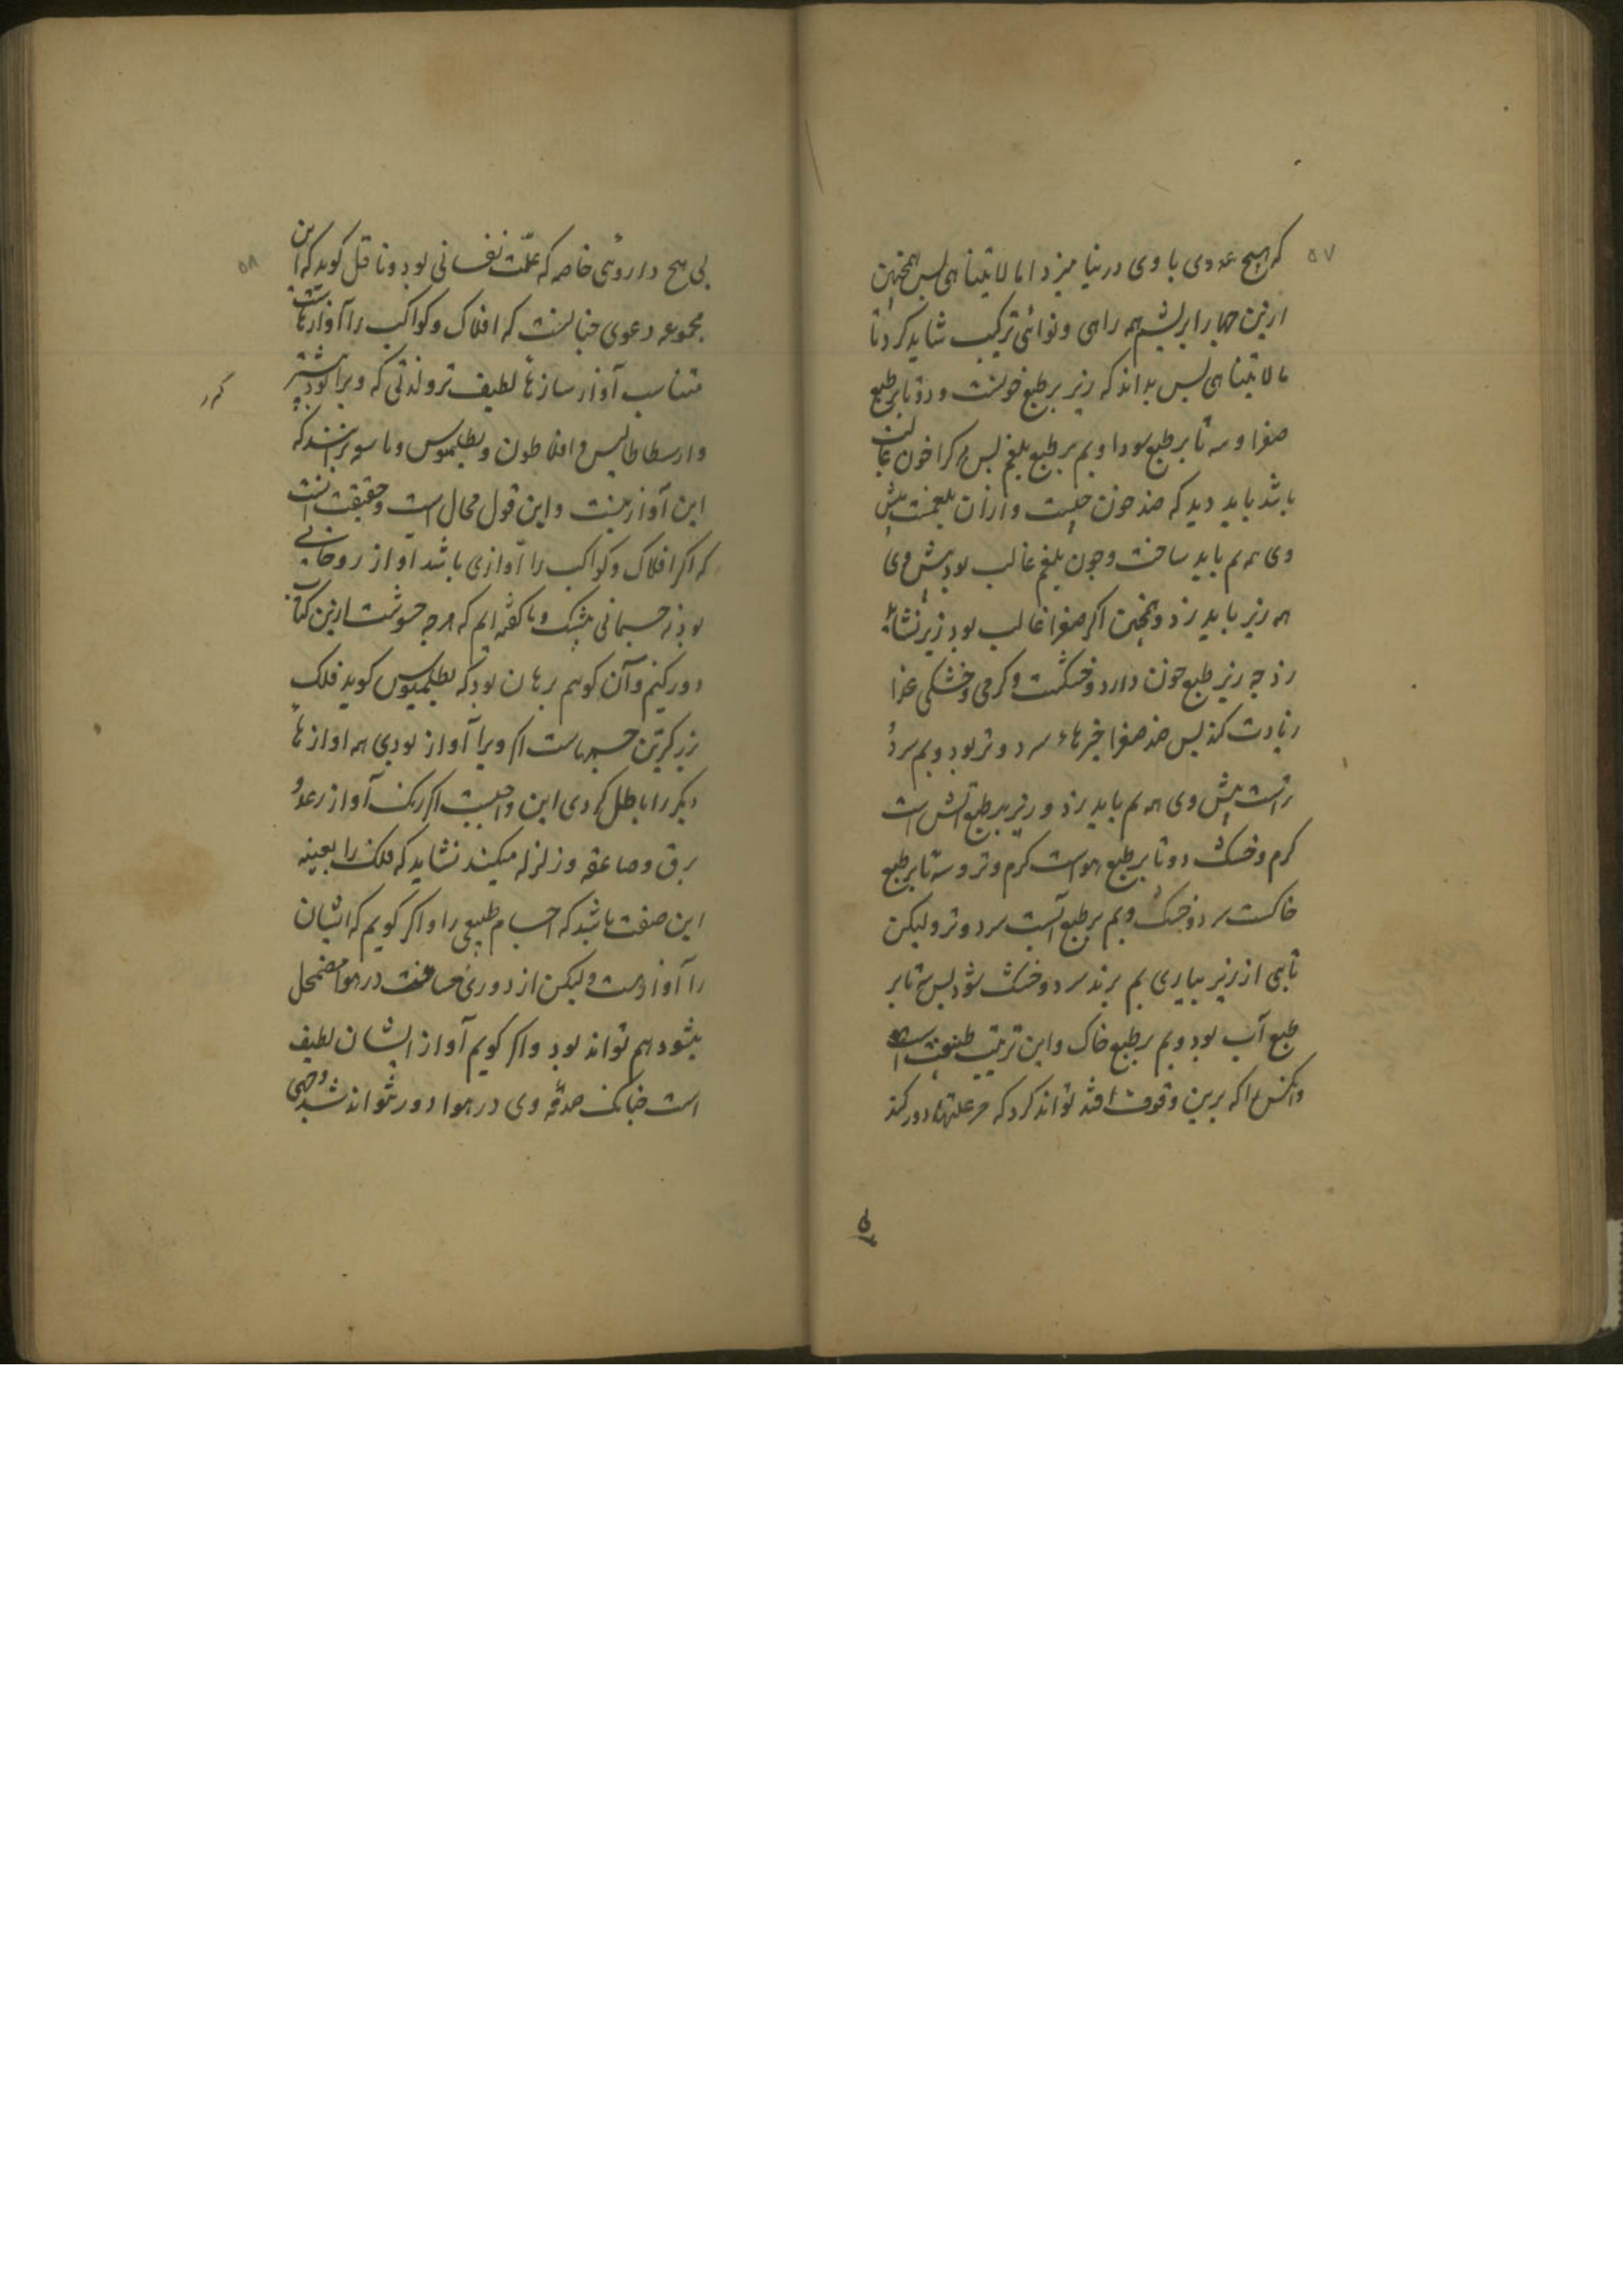 ۵۷
که هیچ عددی با وی در نیامیزد اما لا یتناهی پس همچنین
ازین چهار ابریشم همه راهی و نوائی ترکیب شاید کرد تا
ما لا یتناهی پس بداند که زیر بر طبع خونست و دوتا بر طبع
صفرا و سه تا بر طبع سودا و بم بر طبع بلغم پس هر کرا خون غالب
باشد باید دید که ضد خون چیست و ازان بلغمست پیش
وی همه بم باید ساخت و چون بلغم غالب بود پیش وی
همه زیر باید زد و همچنین اگر صفرا غالب بود زیر نشاید
زد چه زیر طبع خون دارد و خشکست و گرمی و خشکی غذا
زیادت کند پس ضد صفرا چیزهاء سرد و تر بود و بم سرد
ترست پیش وی همه بم باید زد و زیر بر طبع آتش است
گرم و خشک دوتا بر طبع هواست گرم و تر و سه تا بر طبع
خاکست سرد و خشک و بم بر طبع آبست سرد و تر ولیکن
تا بی از زیر بیاری بم برند سرد و خشک شود پس سه تا بر
طبع آب بود و بم بر طبع خاک و این ترتیب است
و آنکس را که برین وقوف افتد تواند کرد که هر علتها دور کند
۵۸
بی هیچ داروئی خاصه که علت نفسانی بود و ناقل گوید که این
مجموعه دعوی چنانست که افلاک و کواکب را آوازهاست
متناسب آواز سازها لطیف تر و لذتی که ویرا بود بیشتر
گر
و ارسطاطالیس و افلاطون و بطلمیوس و برانند که
این آواز نیست و این قول محال است و حقیقت آنست
که اگر افلاک و کواکب را آوازی باشد آواز روحانی
بود نه جسمانی بیشک و ما گفته ایم که هرچه حشوست ازین کتاب
دور کنیم و آن گوئیم برهان بود که بطلمیوس گوید فلک
بزرگترین جسمهاست اگر ویرا آواز بودی همه آوازهاء
دیگر را باطل کردی این واجبیست اگر یک آواز رعد و
برق و صاعقه و زلزله میکند نشاید که فلک را بعینه
این صفت باشد که اجسام طبیعی را و اگر گویم که ایشان
را آواز هست ولیکن از دوری مسافت در هوا مضمحل
میشود هم تواند بود و اگر گویم آواز ایشان لطیف
است چنانک صدقه وی در هوا دور نتواند شد وجهی